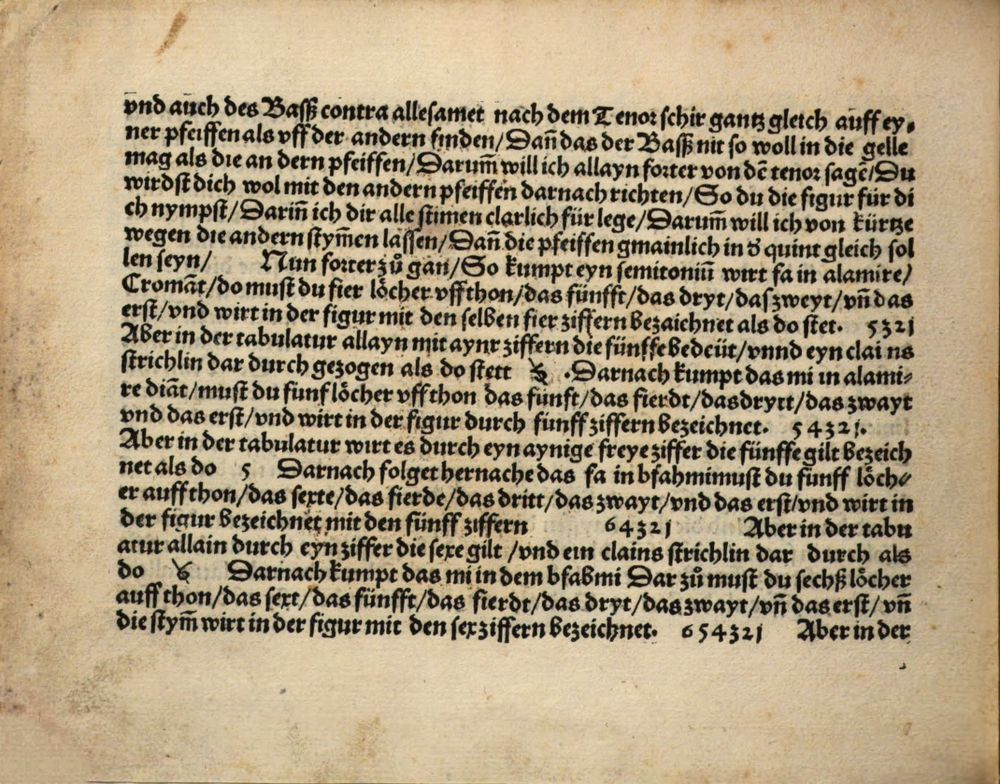 vnd auch des Bassz contra allesamet nach dem Tenor schir gantz gleich auff ey⸗
ner pfeiffen als vff der andern finden/Dan̄ das der Bassz nit so woll in die gelle
mag als die an dern pfeiffen/Darum̄ will ich allayn forter von dē tenor sagē/Du
wirdst dich wol mit den andern pfeiffen darnach richten/So du die figur für di
ch nympst/Darin̄ ich dir alle stimen clarlich für lege/Darum̄ will ich von kürtze
wegen die andern stym̄en lassen/Dan̄ die pfeiffen gmainlich in d' quint gleich sol
len seyn/ Nun forter zů gan/So kumpt eyn semitoniū wirt fa in alamire/
Cromāt/do must du fier löcher vff thon/das fünfft/das dryt/das zweyt/vn̄ das
erst/vnd wirt in der figur mit den selben fier ziffern bezaichnet als do stet. 5321
Aber in der tabulatur allayn mit aynr ziffern die fünffe bedeüt/vnnd eyn clai ns
strichlin dar durch gezogen als do stett 5 .Darnach kumpt das mi in alami⸗
re diāt/must du funf löcher vff thon das funft/das fierdt/das drytt/das zwayt
vnd das erst/vnd wirt in der figur durch fünff ziffern bezeichnet. 54321.
Aber in der tabulatur wirt es durch eyn aynige freye ziffer die fünffe gilt bezeich
net als do 5 Darnach folget hernache das fa in bfahmi must du funff löch⸗
er auff thon/das sexte/das fierde/das dritt/das zwayt/vnd das erst/vnd wirt in
der figur bezeichnet mit den fünff ziffern 64321 Aber in der tabu
atur allain durch eyn ziffer die sexe gilt /vnd ein clains strichlin dar durch als
do 6 Darnach kumpt das mi in dem bfabmi Dar zů must du sechsz löcher
auff thon/das sext/das fünfft/das fierdt/das dryt/das zwayt/vn̄ das erst/vn̄
die stym̄ wirt in der figur mit den sex ziffern bezeichnet. 654321 Aber in der